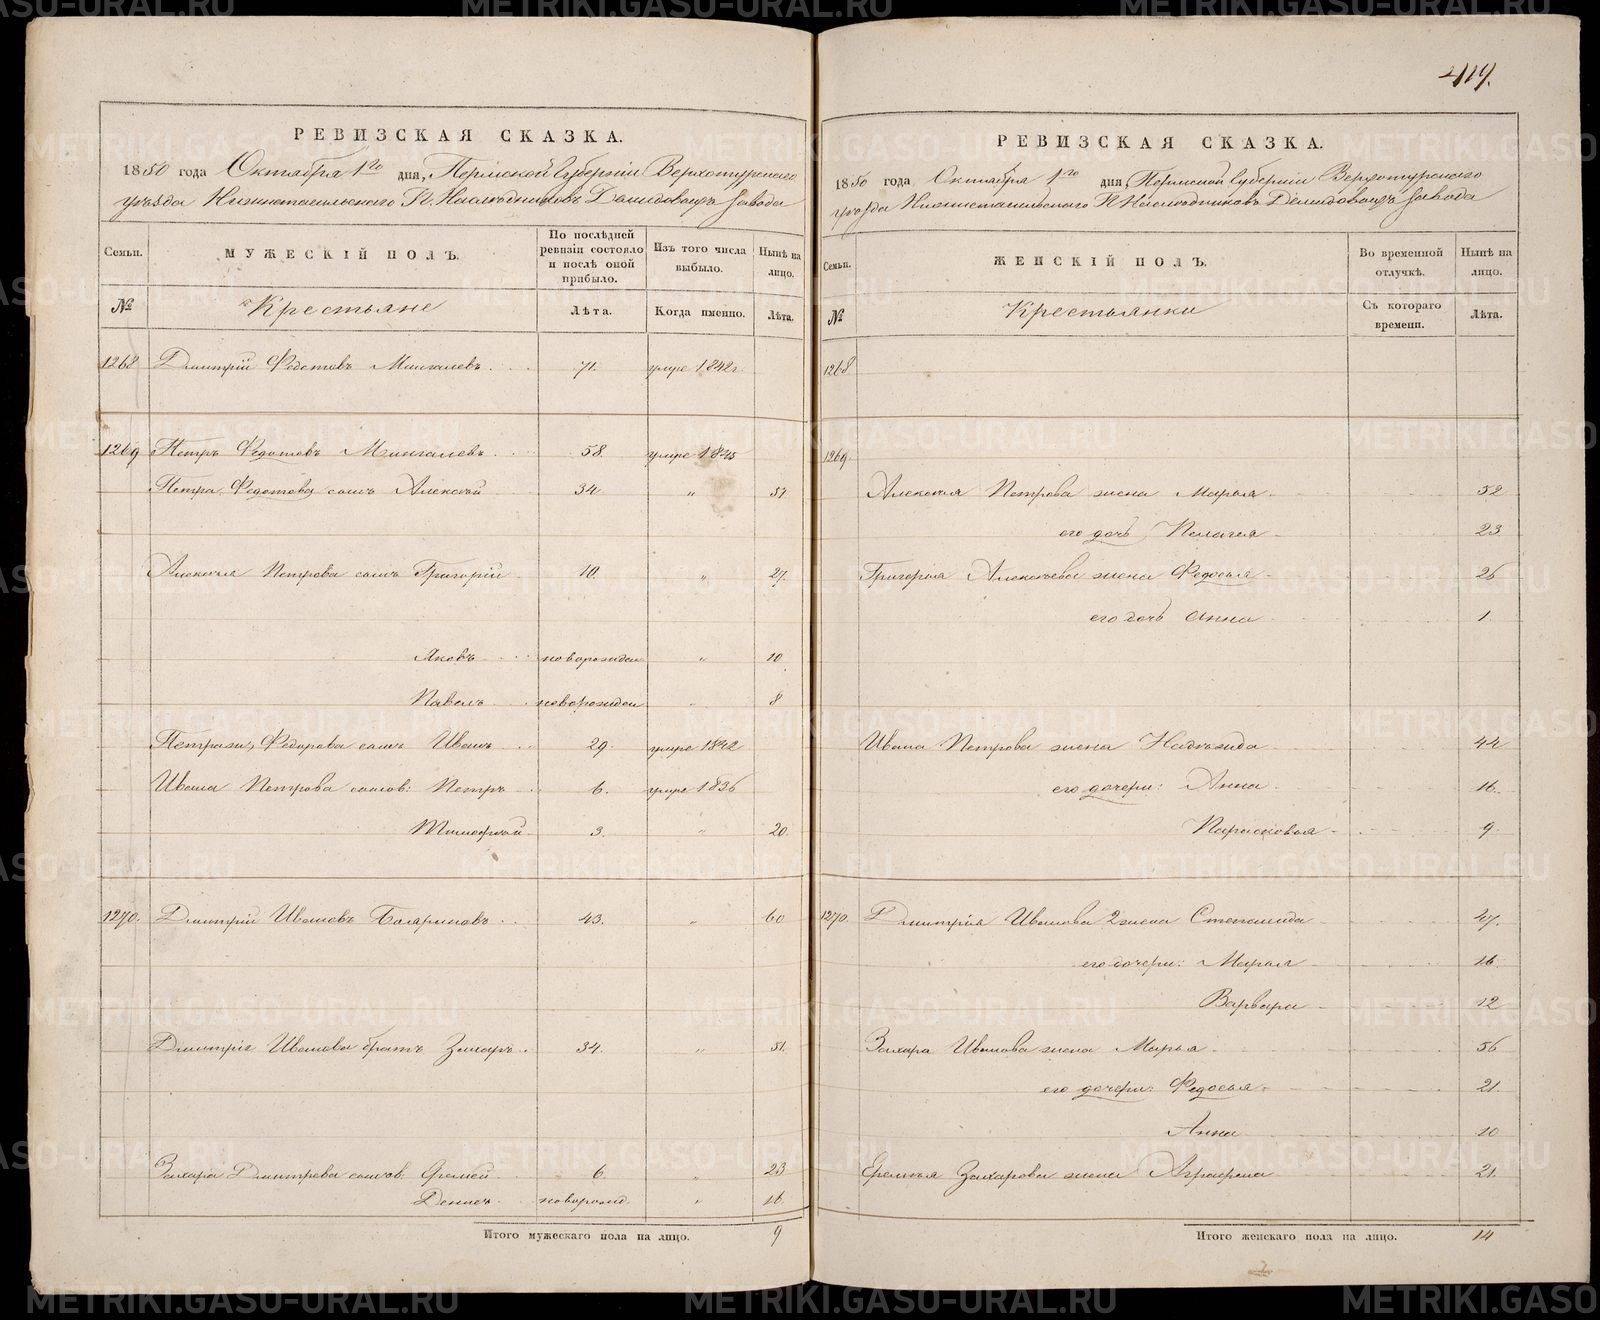 419.
РЕВИЗСКАЯ СКАЗКА.
1850 года Октября 1го дня, Пермской Губернии Верхотурского
уѣзда Нижнетагильскаго Г. Наслѣдниковъ Демидовыхъ завода
Семьи. МУЖЕСКІЙ ПОЛЪ. По послѣдней ревизіи состояло и послѣ оной прибыло. Изъ того числа выбыло. Нынѣ на лицо.
№ Крестьяне Лѣта. Когда именно. Лѣта.
1268 Дмитрій Федотовъ Мингалевъ 71. умре 1842г.
1269 Петръ Федотовъ Мингалевъ 58. умре 1845
Петра Федотова сынъ Алексѣй 34. " 51
Алексѣя Петрова сынъ Григорій 10. " 27.
Яковъ новорожден " 10.
Павелъ новорожден " 8
Федорова сынъ Иванъ 29. умре 1842
Ивана Петрова сынов: Петръ 6. умре 1836
Тимофѣй 3. " 20.
1270. Дмитрій Ивановъ Бояриновъ 43. " 60
Дмитрія Иванова братъ Захаръ 34. " 51.
Захара Дмитрева сынов. Еремѣй 6. " 23
Денисъ новорожд. " 16.
Итого мужескаго пола на лицо. 9
РЕВИЗСКАЯ СКАЗКА.
1850 года Октября 1го дня, Пермской Губерніи Верхотурского
уѣзда Нижнетагильскаго Г. Наслѣдниковъ Демидовыхъ завода
Семьи. ЖЕНСКІЙ ПОЛЪ. Во временной отлучкѣ. Нынѣ на лицо.
№ Крестьянки Съ котораго времени. Лѣта.
1268
1269.
Алексѣя Петрова жена Марья 52
его дочь Пелагея 23
Григорья Алексѣева жена Федосья 26
его дочь Анна 1.
Ивана Петрова жена Надѣжида 44
его дочери: Анна 16.
Парасковья 9.
1270. Дмитрія Иванова 2 жена Степанида 47.
его дочери: Марья 16.
Варвара 12
Захара Иванова жена Марья 56
его дочери: Федосья 21.
Анна 10
Еремѣя Захарова жена Аграфена 21.
Итого женскаго пола на лицо. 14
METRIKI.GASO-URAL.RU